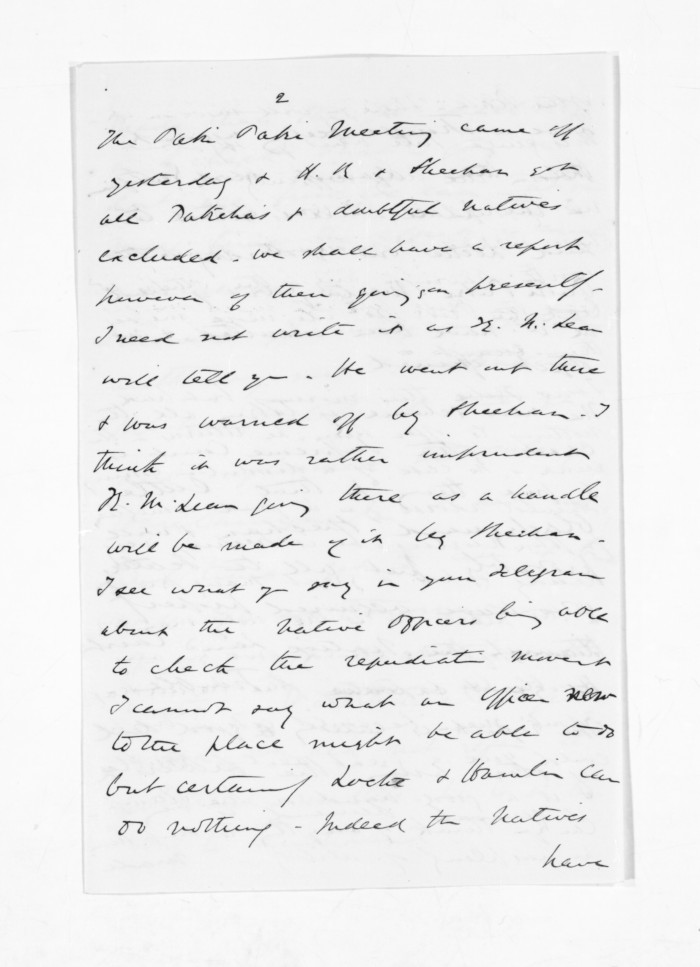 2
The Paki Paki Meeting came off
yesterday & H. R & Sheehan got
all Pakehas & doubtful natives
excluded - we shall have a report
however of their going on presently -
I need not write it as K. McLean
will tell you - He went out there
& was warned off by Sheehan - I
think it was rather imprudent
McLean going there as a handle
will be made of it by Sheehan -
I see what you say in your Telegram
about the Native Officers being able
to check the repudiation movemt
I cannot say what an Officer new
to the place might be able to do
but certainly Locke & Hamlin can
do nothing - Indeed the Natives
have